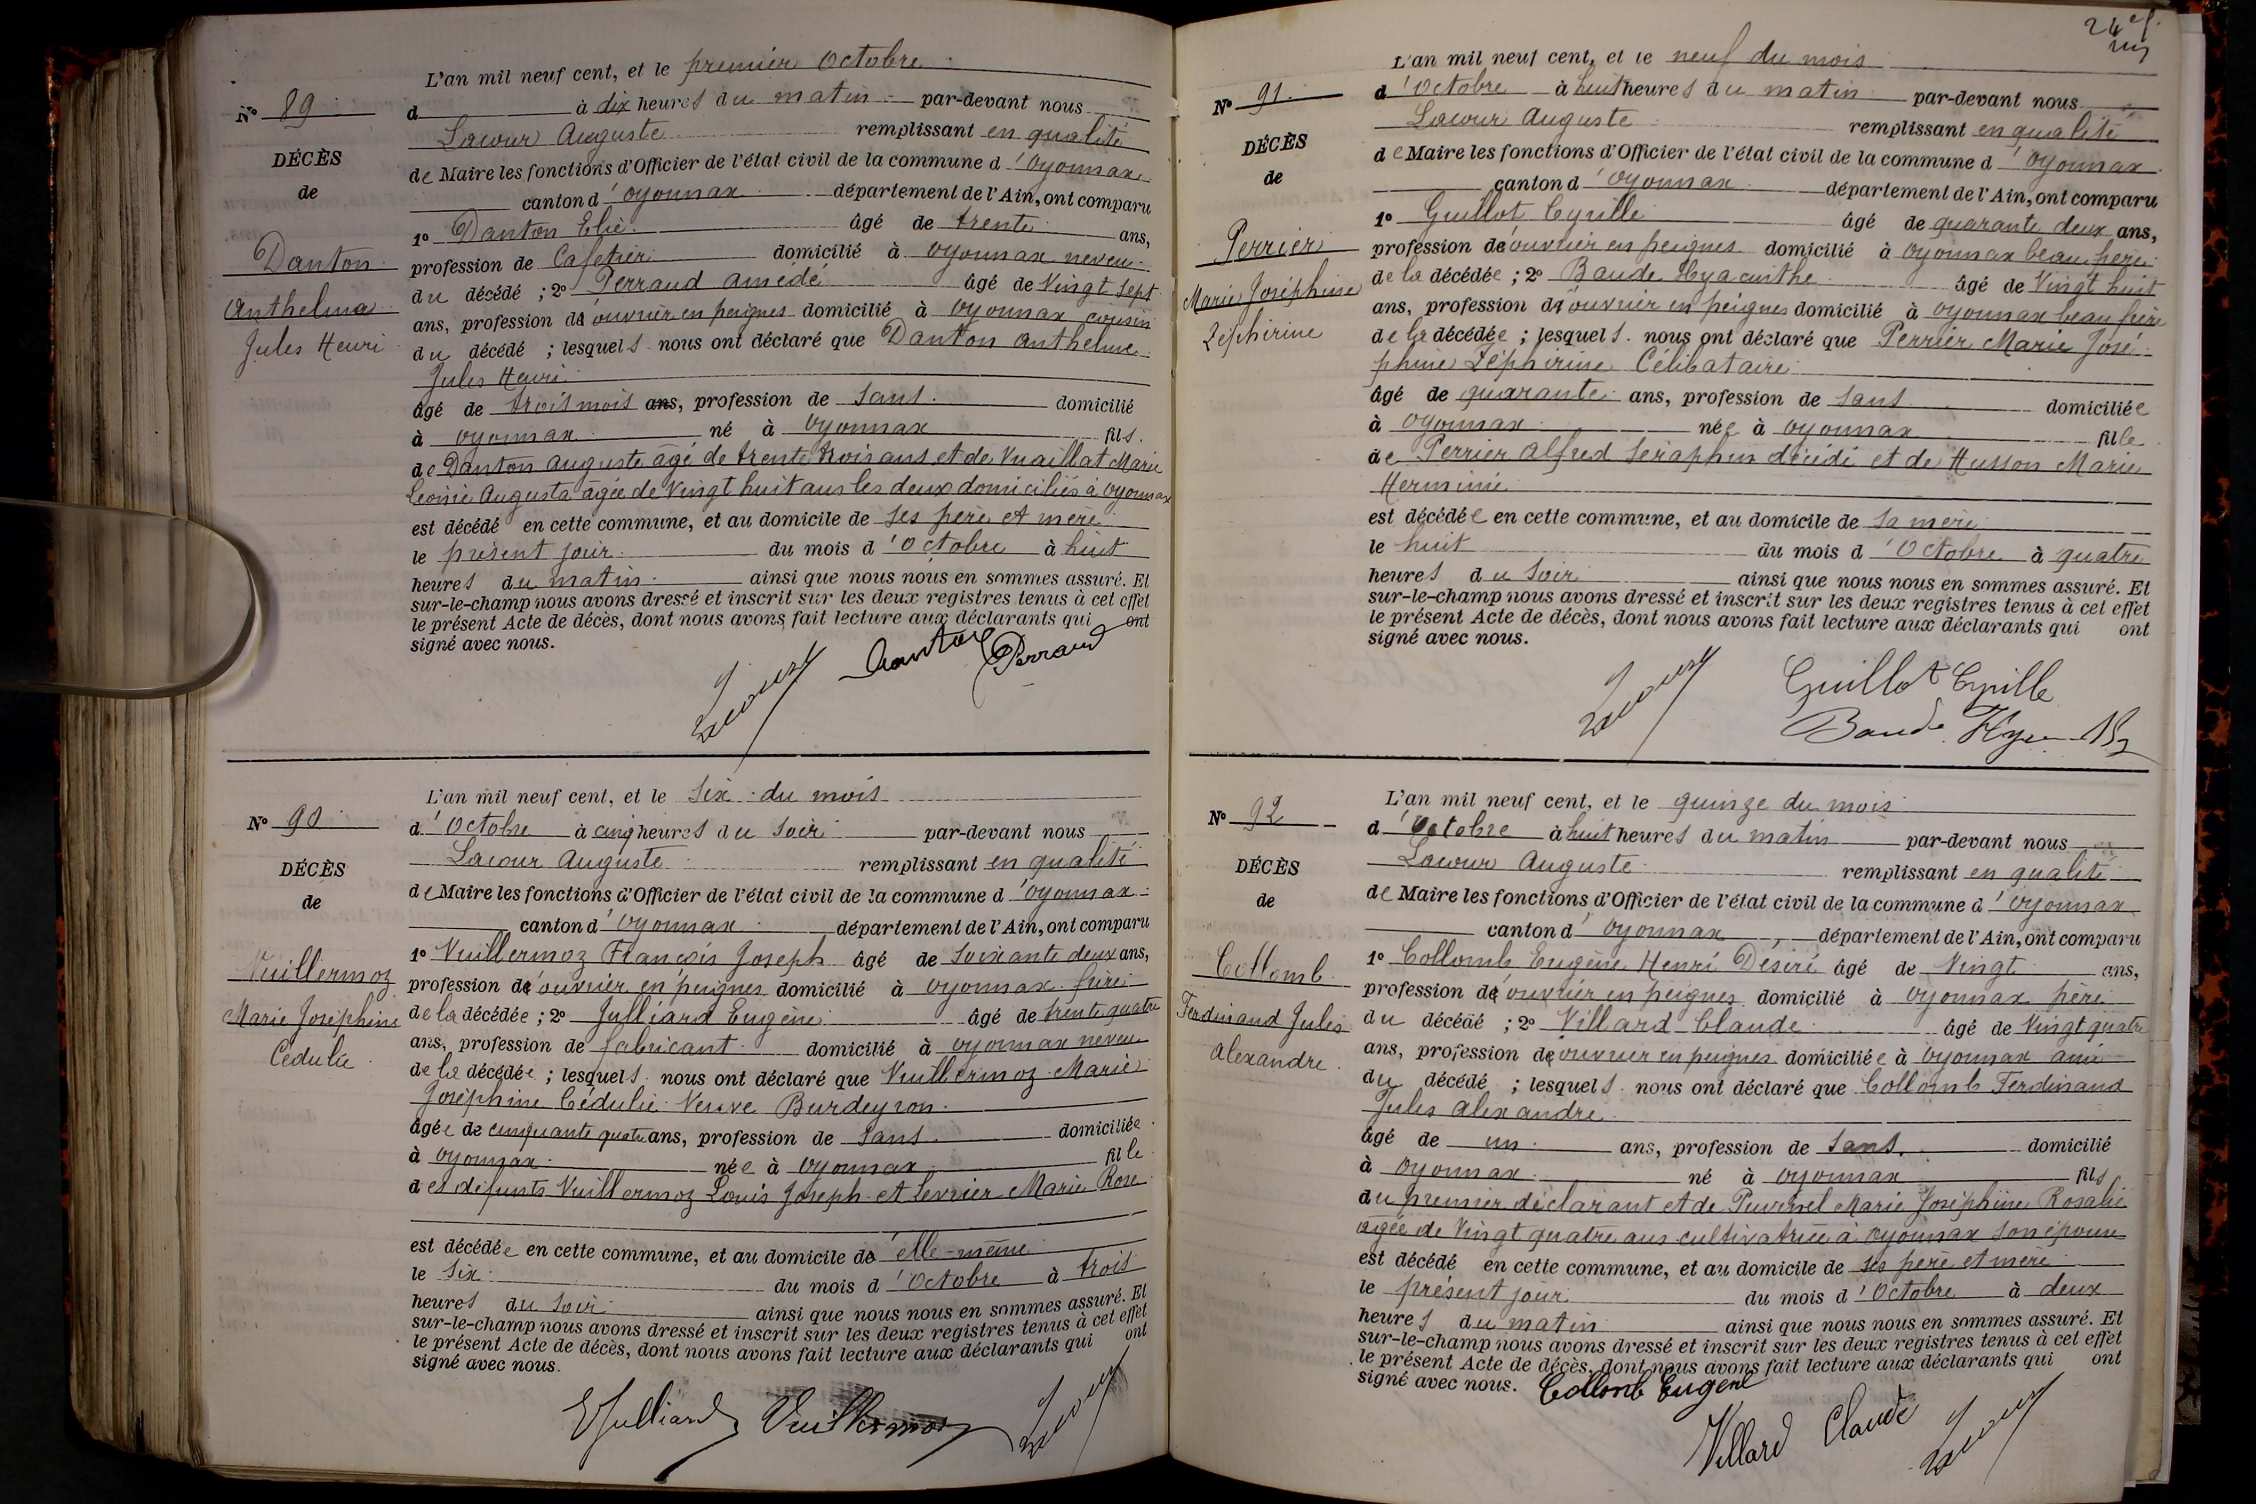 L'an mil neuf cent, et le premier Octobre
N° 89
d à dix heures du matin par-devant nous
Lacour Auguste remplissant en qualité
DÉCÈS
de Maire les fonctions d'Officier de l'état civil de la commune d'Oyonnax
de
canton d'Oyonnax département de l'Ain, ont comparu
1° Danton Elie âgé de trente ans,
Danton
profession de Cafetier domicilié à Oyonnax neveu
du décédé ; 2° Perraud Amédé âgé de Vingt sept
Anthelme
ans, profession d'ouvrier en peignes domicilié à Oyonnax cousin
Jules Henri
du décédé ; lesquels nous ont déclaré que Danton Anthelme
Jules Henri
âgé de trois mois ans, profession de sans domicilié
à Oyonnax né à Oyonnax fils
de Danton Auguste âgé de trente trois ans et de Vuaillat Marie
Léonie Augusta âgée de Vingt huit ans les deux domiciliés à Oyonnax
est décédé en cette commune, et au domicile de ses père et mère
le présent jour du mois d'Octobre à huit
heures du matin ainsi que nous nous en sommes assuré. Et
sur-le-champ nous avons dressé et inscrit sur les deux registres tenus à cet effet
le présent Acte de décès, dont nous avons fait lecture aux déclarants qui ont
signé avec nous.
Lacour Danton Perraud
L'an mil neuf cent, et le six du mois
N° 90
d'Octobre à cinq heures du soir par-devant nous
Lacour Auguste remplissant en qualité
DÉCÈS
de Maire les fonctions d'Officier de l'état civil de la commune d'Oyonnax
de
canton d'Oyonnax département de l'Ain, ont comparu
1° Vuillermoz François Joseph âgé de soixante deux ans,
Vuillermoz
profession d'ouvrier en peignes domicilié à Oyonnax frère
Marie Joséphine
de la décédée ; 2° Julliard Eugène âgé de trente quatre
Cédulie
ans, profession de fabricant domicilié à Oyonnax neveu
de la décédée ; lesquels nous ont déclaré que Vuillermoz Marie
Joséphine Cédulie Veuve Burdeyron
âgée de cinquante quatre ans, profession de sans domiciliée
à Oyonnax née à Oyonnax fille
des défunts Vuillermoz Louis Joseph et Levrier Marie Rose
est décédée en cette commune, et au domicile d'elle-même
le six du mois d'Octobre à trois
heures du soir ainsi que nous nous en sommes assuré. Et
sur-le-champ nous avons dressé et inscrit sur les deux registres tenus à cet effet
le présent Acte de décès, dont nous avons fait lecture aux déclarants qui ont
signé avec nous.
EJulliard Vuillermoz Lacour
24
L'an mil neuf cent, et le neuf du mois
N° 91
d'Octobre à huit heures du matin par-devant nous
Lacour Auguste remplissant en qualité
DÉCÈS
de Maire les fonctions d'Officier de l'état civil de la commune d'Oyonnax
de
canton d'Oyonnax département de l'Ain, ont comparu
1° Guillot Cyrille âgé de quarante deux ans,
Perrier
profession d'ouvrier en peignes domicilié à Oyonnax beau frère
Marie Joséphine
de la décédée ; 2° Baude Hyacinthe âgé de Vingt huit
ans, profession d'ouvrier en peignes domicilié à Oyonnax beau frère
Zéphirine
de la décédée ; lesquels nous ont déclaré que Perrier Marie José-
phine Zéphirine Célibataire
âgé de quarante ans, profession de sans domiciliée
à Oyonnax née à Oyonnax fille
de Perrier Alfred Séraphin décédé et de Husson Marie
Herminie
est décédée en cette commune, et au domicile de sa mère
le huit du mois d'Octobre à quatre
heures du soir ainsi que nous nous en sommes assuré. Et
sur-le-champ nous avons dressé et inscrit sur les deux registres tenus à cet effet
le présent Acte de décès, dont nous avons fait lecture aux déclarants qui ont
signé avec nous.
Lacour Guillot Cyrille
Baude
L'an mil neuf cent, et le quinze du mois
N° 92
d'Octobre à huit heures du matin par-devant nous
Lacour Auguste remplissant en qualité
DÉCÈS
de Maire les fonctions d'Officier de l'état civil de la commune d'Oyonnax
de
canton d'Oyonnax département de l'Ain, ont comparu
1° Collomb Eugène Henri Désiré âgé de Vingt ans,
Collomb
profession d'ouvrier en peignes domicilié à Oyonnax père
Ferdinand Jules
du décédé ; 2° Villard Claude âgé de Vingt quatre
Alexandre
ans, profession d'ouvrier en peignes domiciliée à Oyonnax ami
du décédé ; lesquels nous ont déclaré que Collomb Ferdinand
Jules Alexandre
âgé de un ans, profession de sans domicilié
à Oyonnax né à Oyonnax fils
du premier déclarant et de Marie Joséphine Rosalie
âgée de Vingt quatre ans cultivatrice à Oyonnax son épouse
est décédé en cette commune, et au domicile de ses père et mère
le présent jour du mois d'Octobre à deux
heures du matin ainsi que nous nous en sommes assuré. Et
sur-le-champ nous avons dressé et inscrit sur les deux registres tenus à cet effet
le présent Acte de décès, dont nous avons fait lecture aux déclarants qui ont
signé avec nous. Collomb Eugene
Villard Claude Lacour